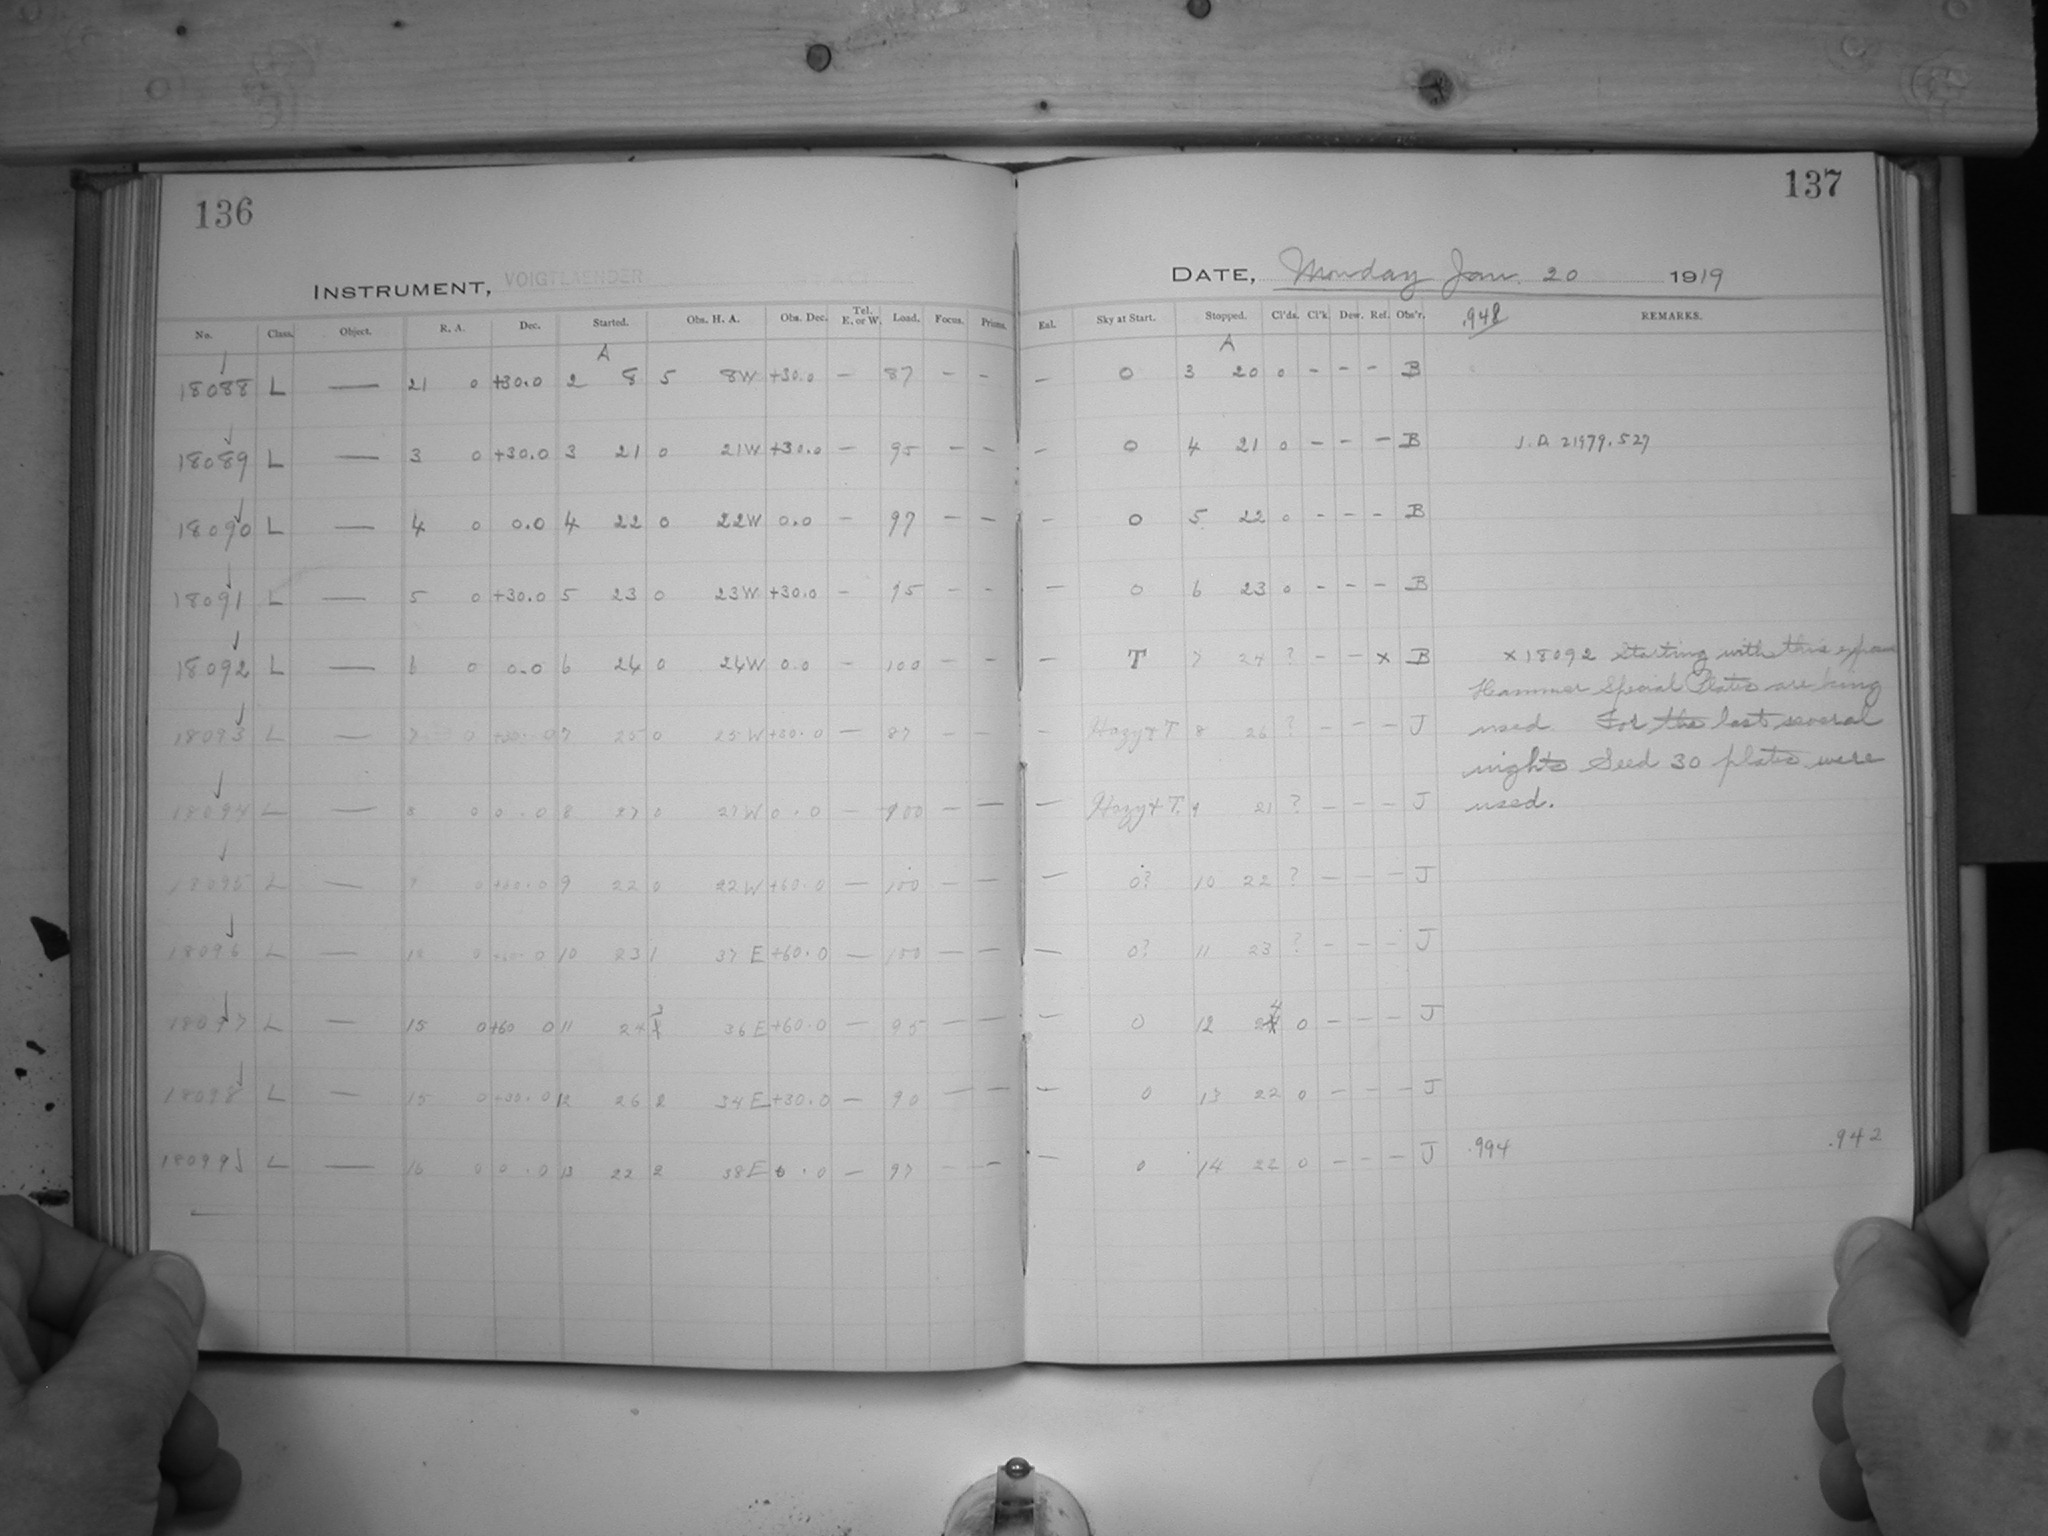 136
INSTRUMENT, VOIGTLAENDER
No. Class. Object. R. A. Dec. Started. Obs. H. A. Obs. Dec. Tel. E. or W. Load. Focus. Prisms.
A
18088 L — 21 0 +30.0 2 8 5 8W +30.0 — 87 – –
18089 L — 3 0 +30.0 3 21 0 21W +30.0 — 95 – –
18090 L — 4 0 0.0 4 22 0 22W 0.0 – 97 – –
18091 L — 5 0 +30.0 5 23 0 23W +30.0 – 95 – –
18092 L — 6 0 0.0 6 24 0 24W 0.0 – 100 – –
18093 L — 7 0 +30.0 7 25 0 25W +30.0 — 87 – –
18094 L — 8 0 0.0 8 27 0 27W 0.0 — 100 – –
18095 L — 9 0 +60.0 9 22 0 22W +60.0 — 100 – –
18096 L — 0 +60.0 10 23 1 37 E +60.0 — 100 – –
18097 L — 15 0 +60 0 11 24 3 36 E +60.0 — 95 – –
18098 L — 15 0 +30.0 12 26 2 34 E +30.0 — 90 – –
18099 L — 16 0 0.0 13 22 2 38 E 0.0 — 97 – –
137
DATE, Monday Jan. 20 1919
Eal. Sky at Start. Stopped. Cl'ds. Cl'k. Dew. Ref. Obs'r. .948 REMARKS.
A
— 0 3 20 0 – – – B
— 0 4 21 0 – – – B J.D. 21979.527
— 0 5 22 0 – – – B
— 0 6 23 0 – – – B
— T 7 24 ? – – x B x 18092 Starting with this
Hammer Special Plates are being
— Hazy & T 8 26 ? – – – J used. For the last several
nights Seed 30 plates were
— Hazy & T. 9 21 ? – – – J used.
— 0? 10 22 ? – – – J
— 0? 11 23 ? – – – J
— 0 12 24 0 – – – J
— 0 13 22 0 – – – J
— 0 14 22 0 – – – J .994 .942